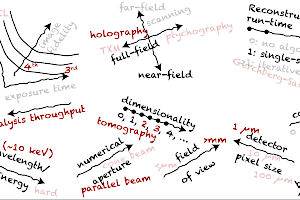 far-field
scanning
holography
ptychography
TXM
full-field
near-field
image
fidelity
4th
3rd
exposure time
analysis throughput
Reconstru
run-time
0: no algo
1: single-s
iterative
Gerchberg-Sax
dimensionality
0, 1, 2, 3, 4, ...
tomography
(~10 keV)
wavelength/
energy
hard
numerical
aperture
beam
parallel beam
mm
field
of view
1 µm
detector
pixel size
100 µm